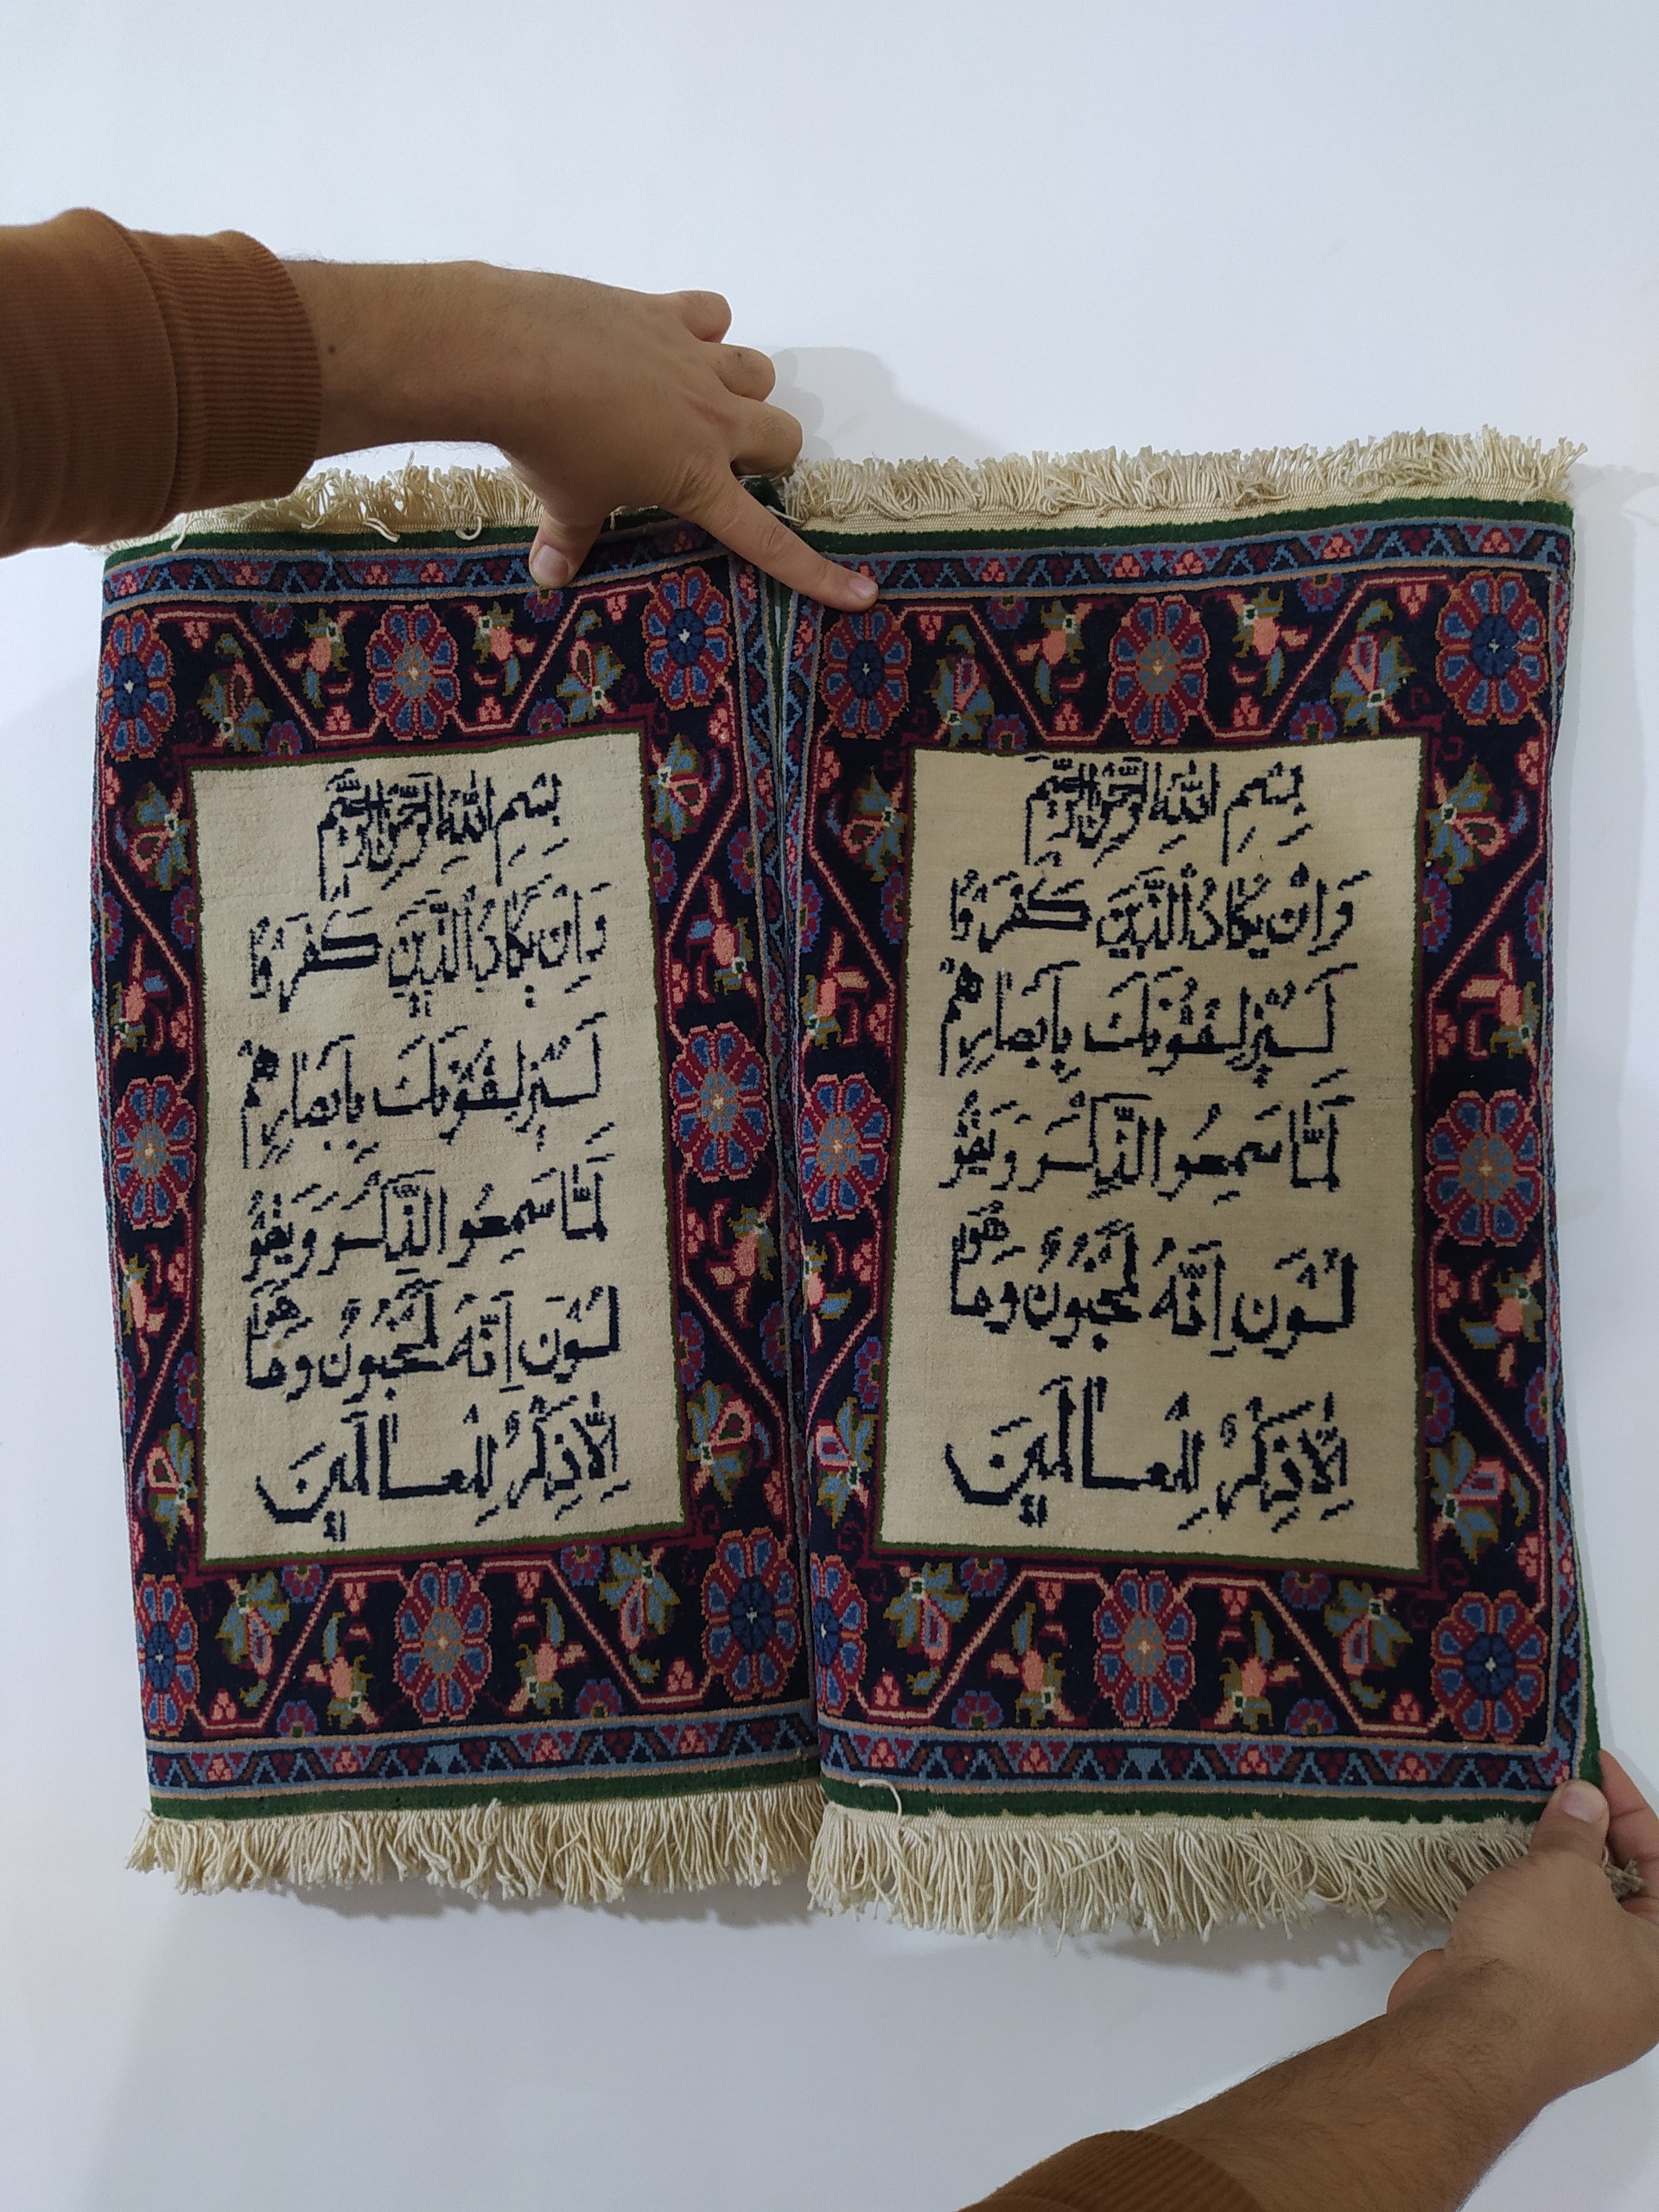 بِسْمِ اللهِ الرَّحْمنِ الرَّحِيمِ
وَاِنْ يَكَادُ الَّذِينَ كَفَرُوا
لَيُزْلِقُونَكَ بِاَبْصَارِهِمْ
لَمَّا سَمِعُوا الذِّكْرَ وَيَقُو
لُونَ اِنَّهُ لَمَجْنُونٌ وَمَا هُوَ
اِلَّا ذِكْرٌ لِلْعَالَمِينَ
بِسْمِ اللهِ الرَّحْمنِ الرَّحِيمِ
وَاِنْ يَكَادُ الَّذِينَ كَفَرُوا
لَيُزْلِقُونَكَ بِاَبْصَارِهِمْ
لَمَّا سَمِعُوا الذِّكْرَ وَيَقُو
لُونَ اِنَّهُ لَمَجْنُونٌ وَمَا هُوَ
اِلَّا ذِكْرٌ لِلْعَالَمِينَ